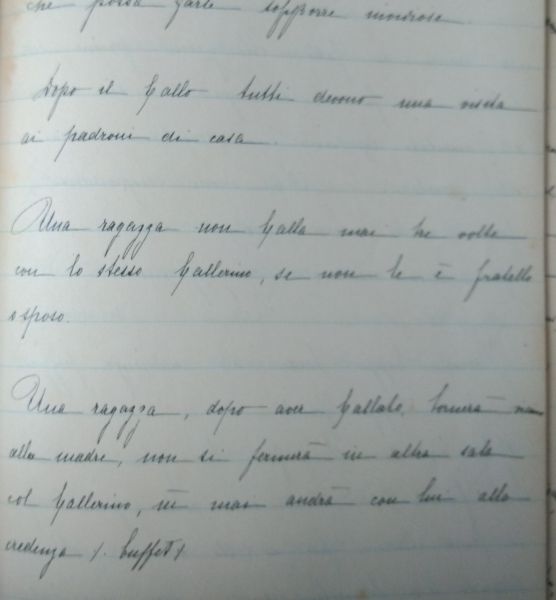 che possa farle supporre noiose.
Dopo il ballo tutti devono una visita
ai padroni di casa.
Una ragazza non balla mai tre volte
con lo stesso ballerino, se non le è fratello
o sposo.
Una ragazza, dopo aver ballato, tornerà
alla madre, non si fermerà in altra sala
col ballerino, nè mai andrà con lui alla
credenza /. buffet /.